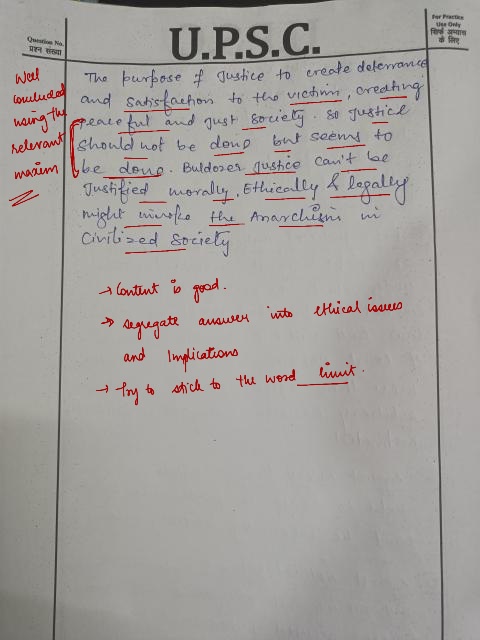 Question No.
प्रश्न संख्या
U.P.S.C.
For Practice
Use Only
सिर्फ अभ्यास
के लिए
Well
concluded
using the
relevant
maxim
The purpose of Justice to create deterrance
and satisfaction to the victim, creating
peaceful and just society. So Justice
should not be done but seems to
be done. Buldozer Justice can't be
Justified morally, Ethically & legally
might invoke the Anarchism in
Civilized Society
→ Content is good.
→ segregate answer into ethical issues
and Implications
→ Try to stick to the word limit.